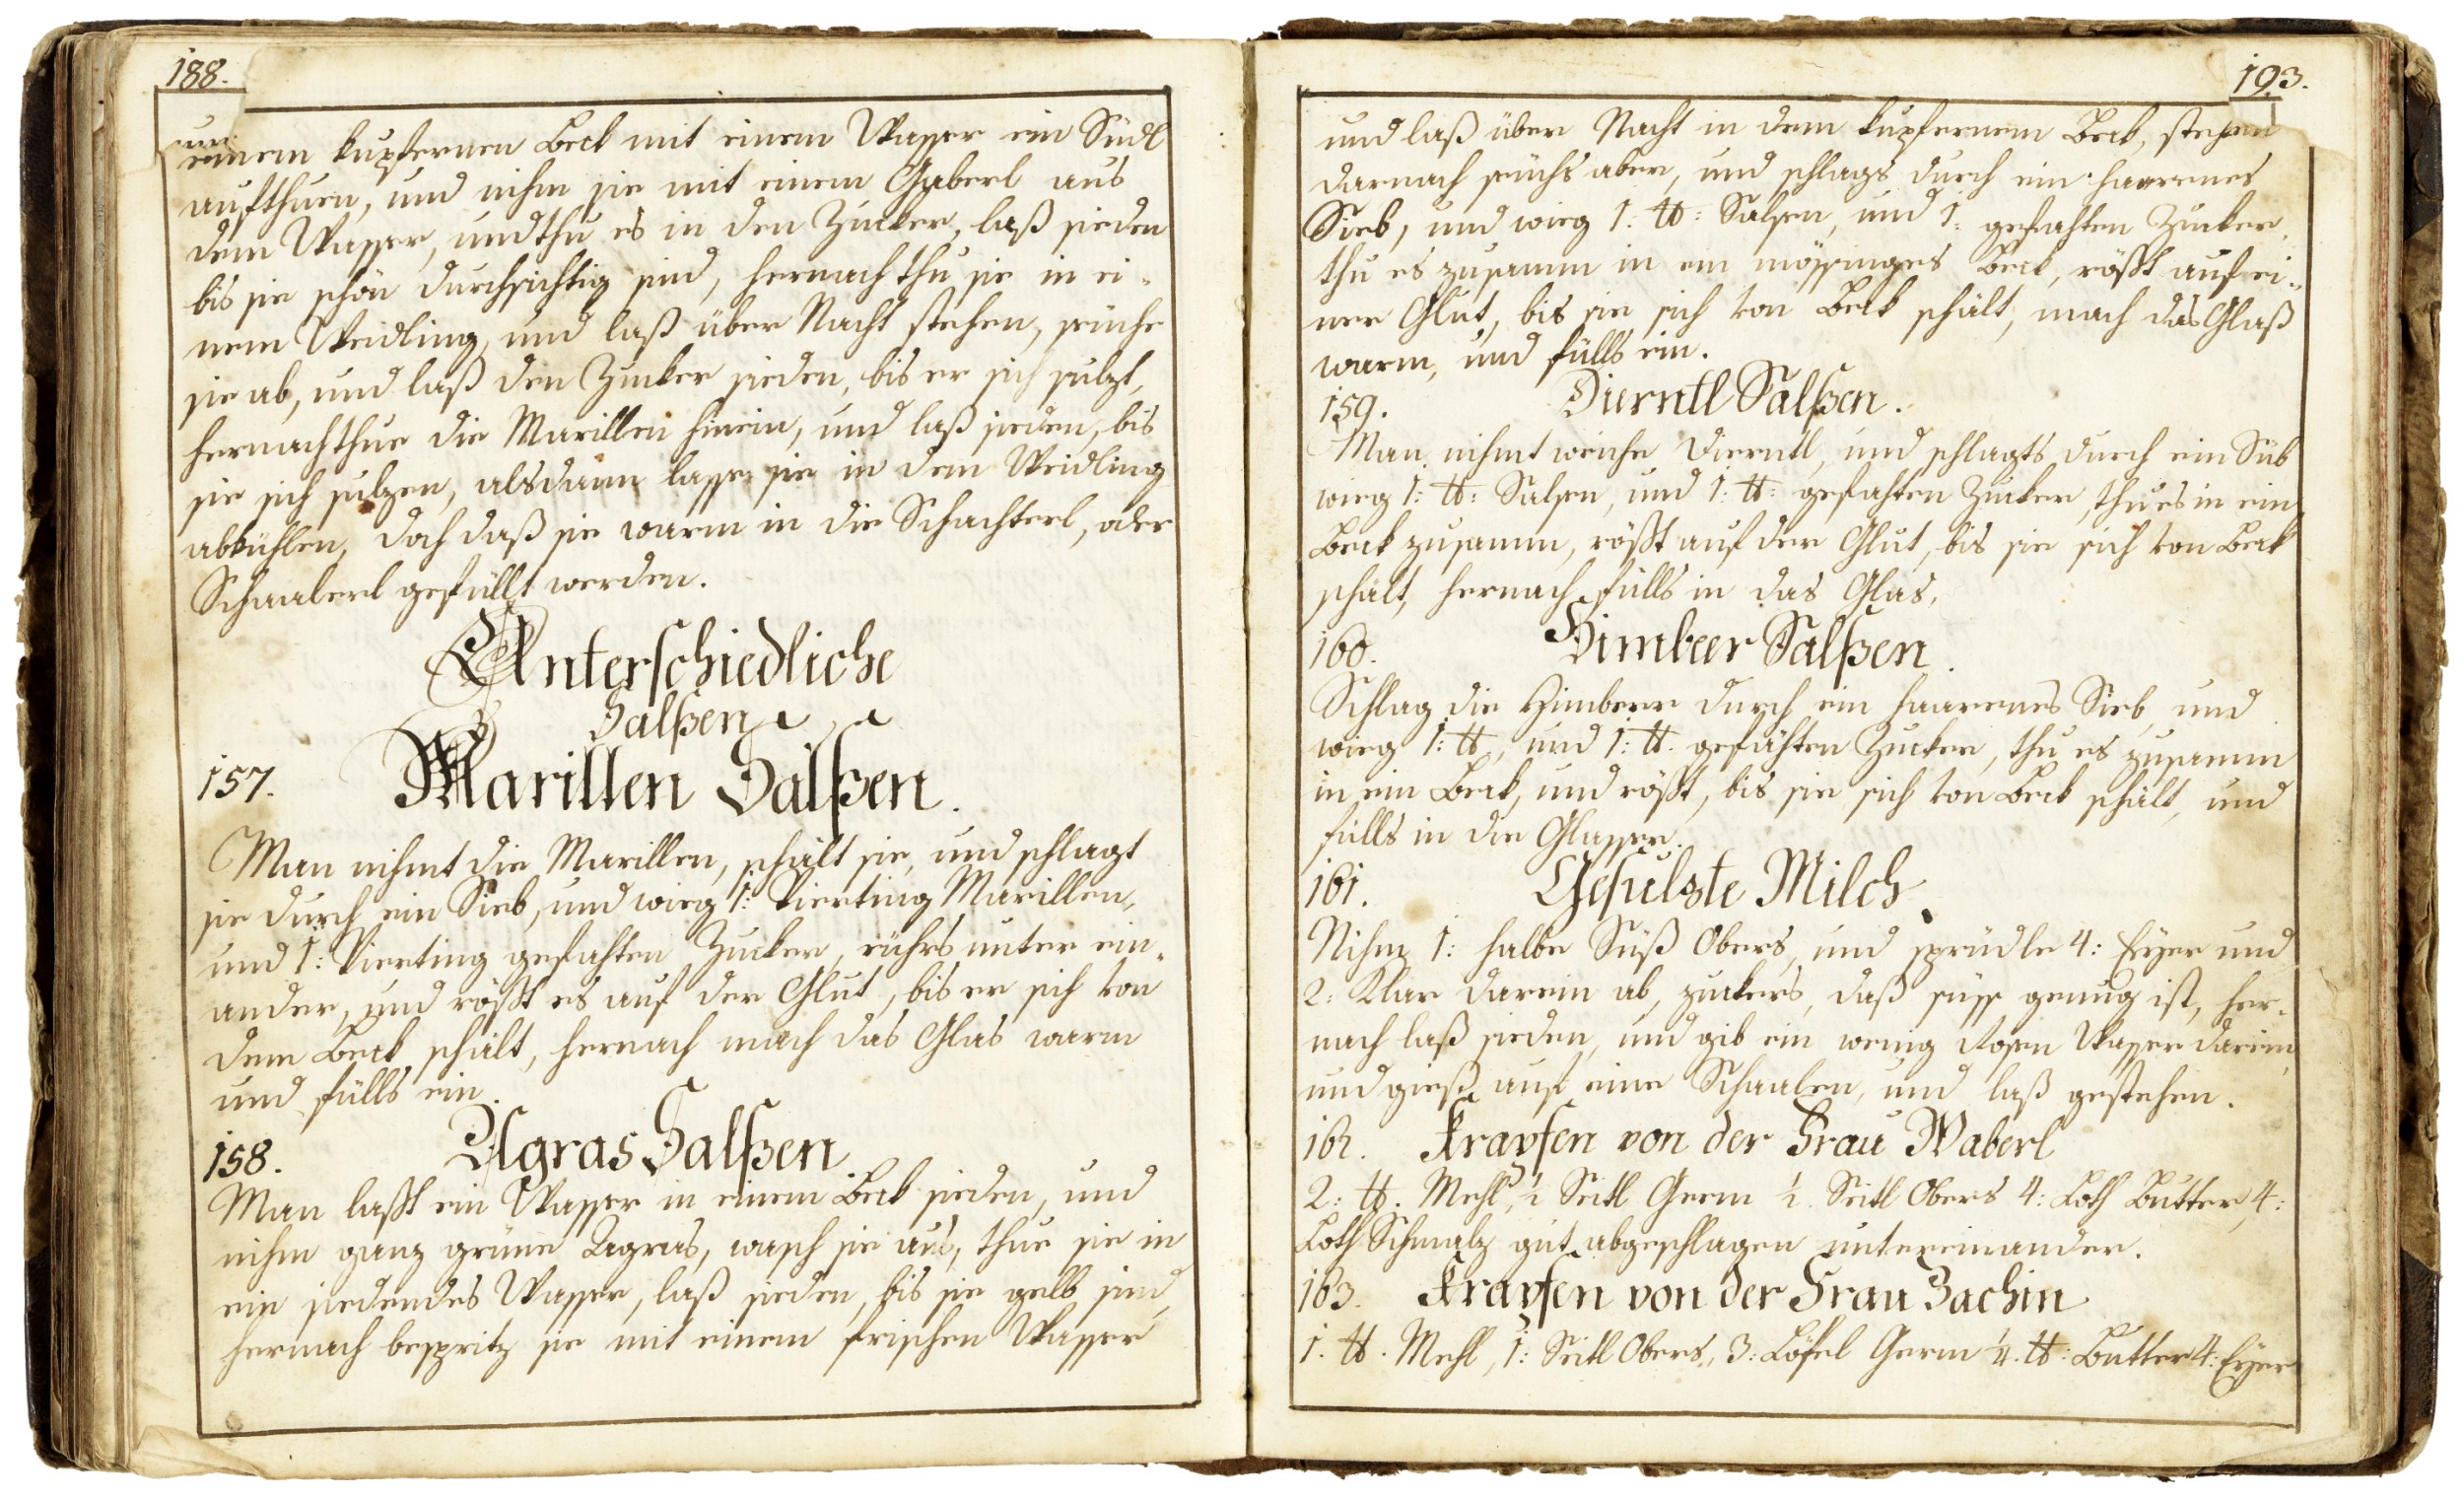 188.
einem kupfernen Beck mit einem Wasser ein Südl
aufthuen, und nihm sie mit einem Gaberl aus
dem Wasser, und thu es in den Zucker, laß sieden
bis sie schön durchsichtig sind, hernach thu sie in ei-
nem Weidling, und laß über Nacht stehen, seiche
sie ab, und laß den Zucker sieden, bis er sich sulzt,
hernach thue die Marillen hinein, und laß sieden, bis
sie sich sulzen, alsdann lasse sie in dem Weidling
abkühlen, doch daß sie warm in die Schachterl, oder
Schaalerl gefüllt werden.
Unterschiedliche
Salßen
157. Marillen Salßen.
Man nihmt die Marillen, schält sie, und schlagt
sie durch ein Sieb, und wieg 1: Vierting Marillen,
und 1: Vierting gefahten Zucker, rührs unter ein-
ander, und rößt es auf der Glut, bis er sich von
dem Beck schält, hernach mach das Glas warm
und fülls ein.
158. Agras Salßen.
Man laßt ein Wasser in einem Beck sieden, und
nihm ganz grüne Agras, wasch sie aus, thue sie in
ein siedendes Wasser, laß sieden, bis sie gelb sind,
hernach bespritz sie mit einem frischen Wasser
193.
und laß über Nacht in dem kupfernem Beck, stehen
darnach seichs aber, und schlags durch ein haarenes
Sieb, und wieg 1: ℔: Salsen, und 1: gefahten Zucker,
thu es zusamm in ein mössinges Beck, rößt auf ei-
ner Glut, bis sie sich von Beck schält, mach das Glaß
warm, und fülls ein.
159. Dierntl Salßen.
Man nihmt weiche Dierntl, und schlagts durch ein Süb
wieg 1: ℔: Salsen, und 1: ℔: gefahten Zucker, thu es in ein
Beck zusamm, rößt auf der Glut, bis sie sich von Beck
schält, hernach fülls in das Glas,
160. Himbeer Salßen.
Schlag die Himbeer durch ein haarenes Sieb, und
wieg 1: ℔, und 1: ℔. gefahten Zucker, thu es zusamm
in ein Beck, und rößt, bis sie sich von Beck schält, und
fülls in die Glasser.
161. Gesulzte Milch.
Nihm 1: halbe Süß Obers, und sprüdle 4: Eyer und
2: Klar darein ab, zuckers, daß süss genug ist, her-
nach laß sieden, und gib ein wenig Rosen Wasser darein,
und gieß auf eine Schaalen, und laß gestehen.
162. Krapfen von der Frau Waberl
2: ℔. Mehl, ½ Seitl Germ ½. Seitl Obers 4: Loth Butter, 4:
Loth Schmalz gut abgeschlagen untereinander.
163. Krapfen von der Frau Bachin
1. ℔. Mehl, 1: Seitl Obers, 3: Löfel Germ ¼. ℔: Butter 4: Eyer